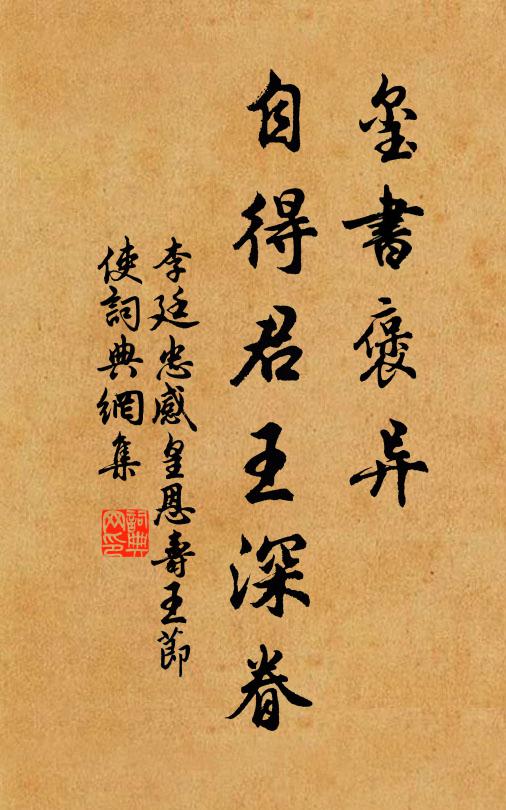 玺書褒异
自得君王深眷
李廷忠感皇恩壽王節
使詞典網集
詞典
网印